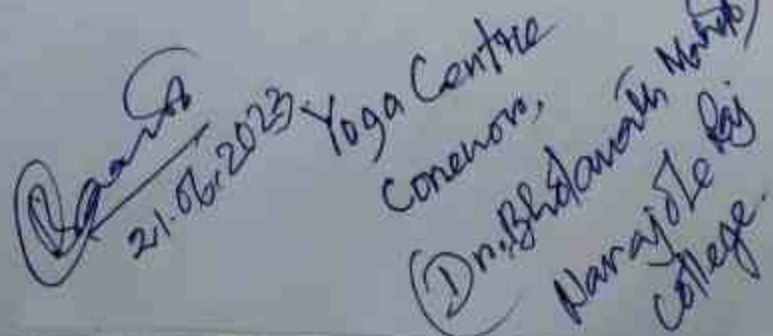 21.06.2023
Yoga Centre
Convenor,
(Dr. Bholanath
Narajole Raj
College.